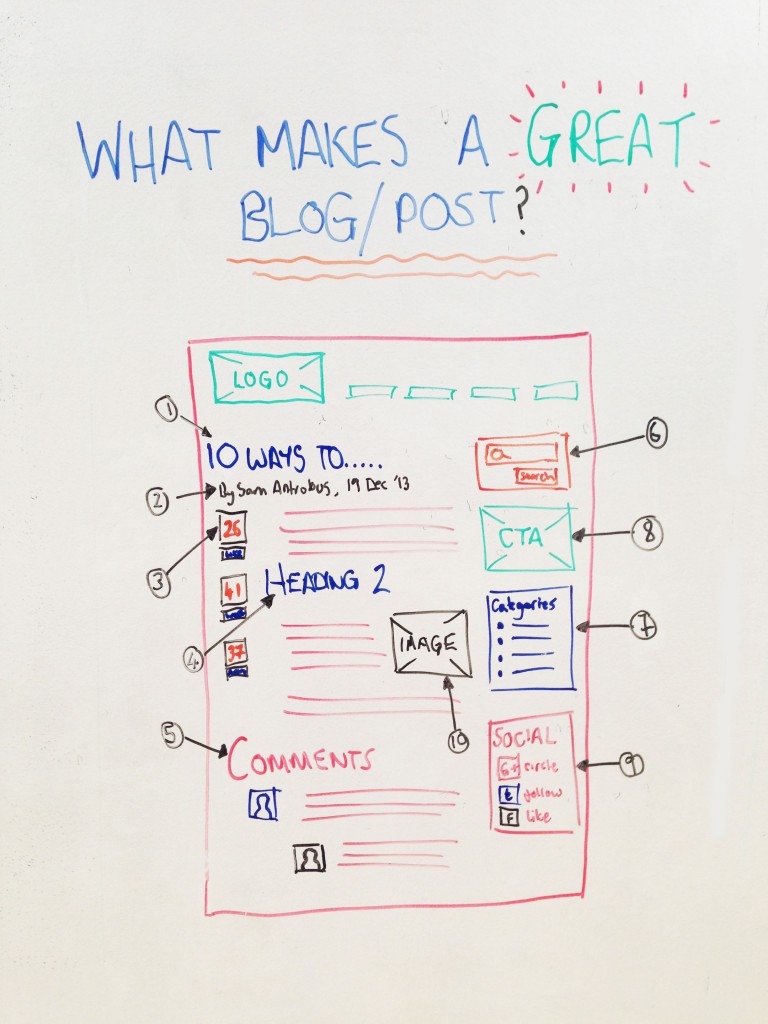 WHAT MAKES A GREAT
BLOG/POST?
LOGO
1
10 WAYS TO.....
6
search
2
By Sam Antrobus, 19 Dec '13
26
3
8
CTA
HEADING 2
41
4
Categories
7
IMAGE
37
10
5
COMMENTS
SOCIAL
9
G+ circle
t follow
f like